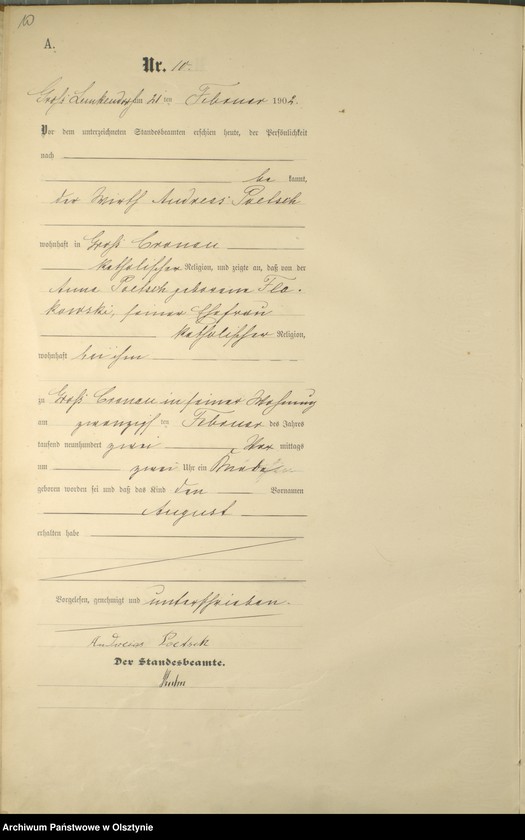 10
A.
Nr. 10.
Groß Lemkendorf am 21 ten Februar 1902.
Vor dem unterzeichneten Standesbeamten erschien heute, der Persönlichkeit
nach
be kannt,
der Wirth Andreas Poetsch
wohnhaft in Groß Cronau
katholischer Religion, und zeigte an, daß von der
Anna Poetsch geborene Flo-
kowski, seiner Ehefrau
katholischer Religion,
wohnhaft bei ihm
zu Groß Cronau in seiner Wohnung
am zwanzigsten Februar des Jahres
tausend neunhundert zwei Vor mittags
um zwei Uhr ein
geboren worden sei und daß das Kind den Vornamen
August
erhalten habe
Vorgelesen, genehmigt und unterschrieben.
Andreas Poetsch
Der Standesbeamte.
Archiwum Państwowe w Olsztynie